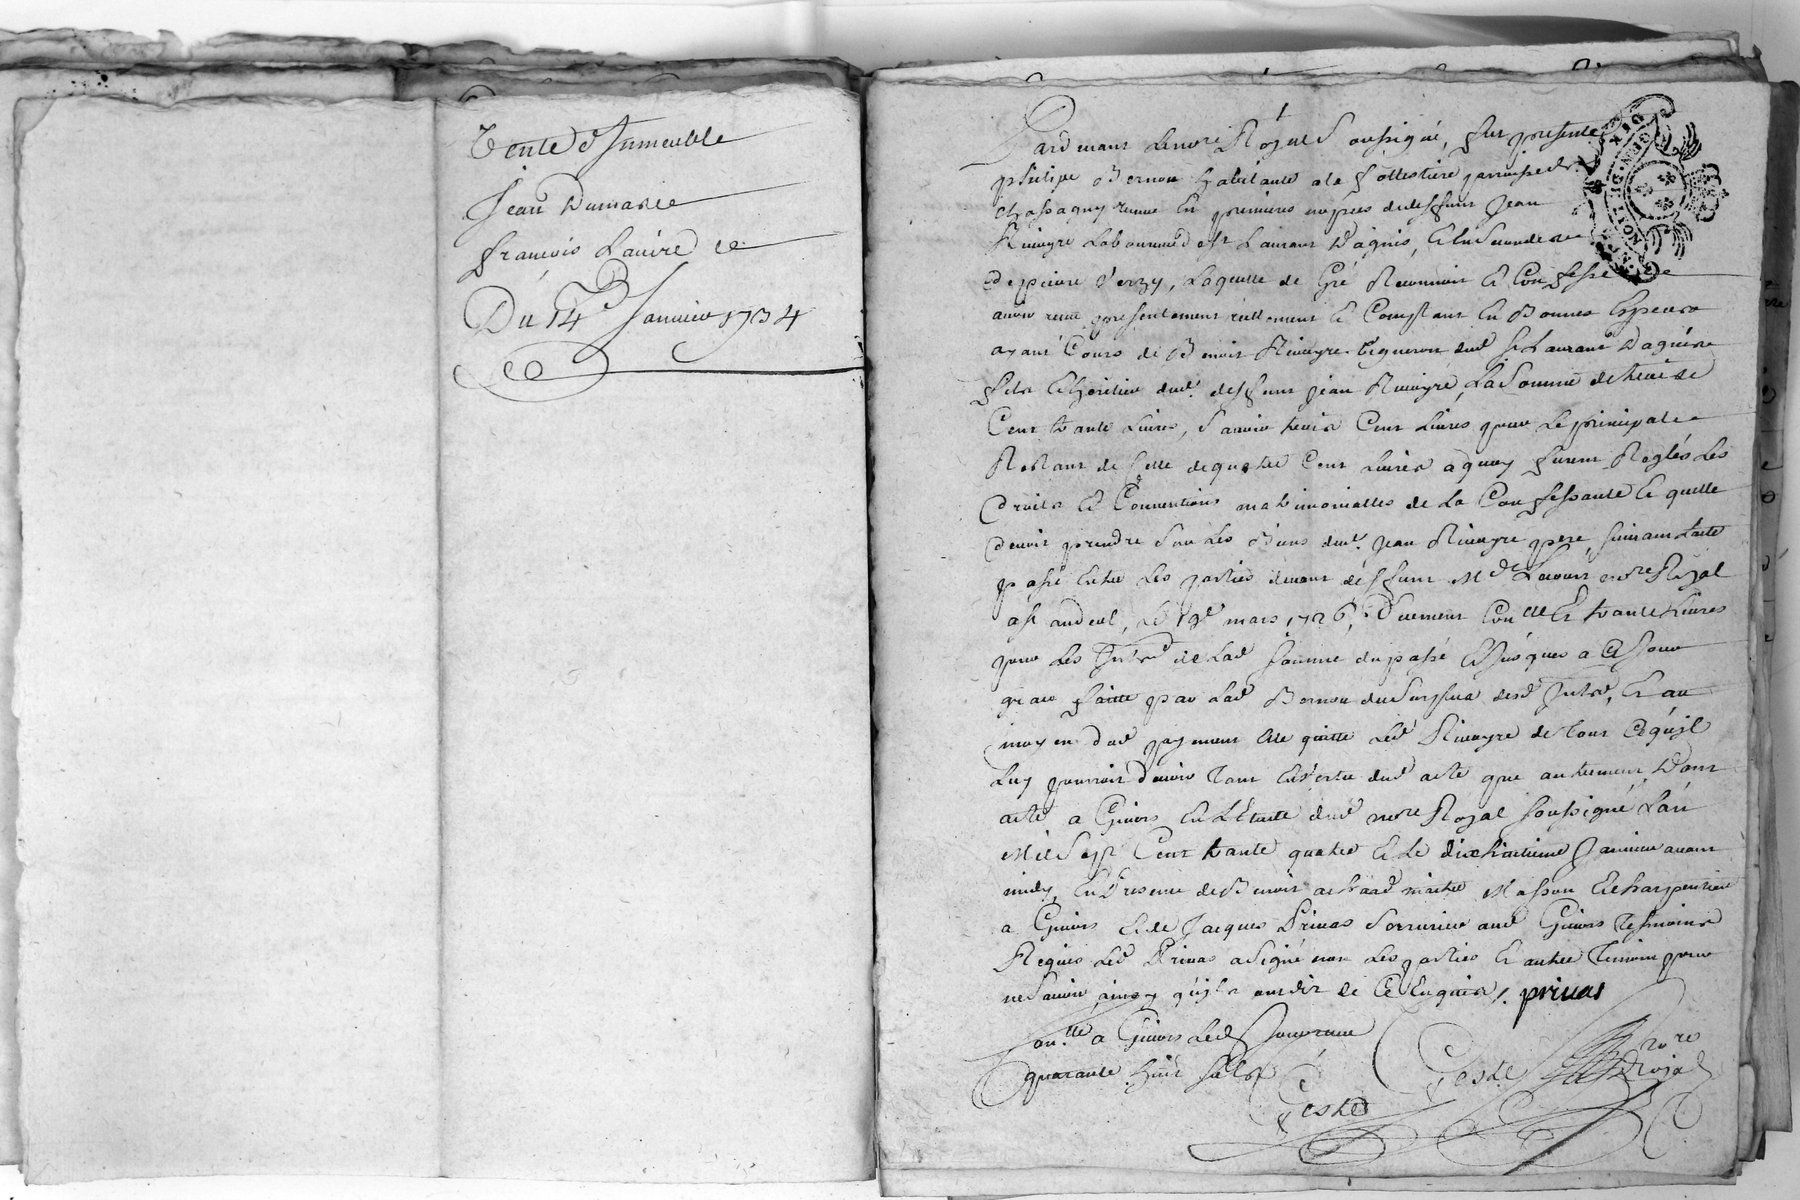 Vente d'Immeuble
Jean Dumas
françois Lauvre
Du 14e Janvier 1734
Pardevant Le nore Royal Soussigné, fut presente
philipe Bernou habitante a la follettiere parroisse de
chassagny veuve En premieres nopces de deffunt Jean
Rivoyre Laboureur de st Laurant D'agnis, Et En Secondes
de pierre Verzy, Laquelle de Gré Reconnoit Et Confesse
avoir receu presentement réellement Et Comptant En Bonnes Especes
ayant Cours de Benoit Rivoyre vigneron dud st Laurant D'agnis
fils Et heritier dud. deffunt Jean Rivoyre, La Somme de trois
Cent trante Livres, Savoir trois Cent Livres pour Le principal
Restant de Celle de quatre Cent Livres a quoy furent Reglés Les
Droits Et Conventions matrimonialles de La Confessante Et quelle
devoit prendre Sur Les Biens dud. Jean Rivoyre pere, suivant L'acte
passé Entre Les parties devant deffunt Me nore Royal
a st andeol, Le 19e mars 1726, Duement Con.llé Et trante Livres
pour Les Intrds de Lad Somme du passé Et Jusques a Ce Jour
grace faitte par Lad Bernou du Surplus desd Intrds, Et au
moyen dud payement Elle quitte Led Rivoyre de tout Ce qu'il
Luy pourroit devoir Tant En Vertu dud acte que autrement Dont
acte a Givors En L'Etude dud nore Royal soussigné L'an
Mil Sept Cent trante quatre Et Le dixhuitieme Janvier avant
midy, En Presence de Benoit maitre Masson Et Charpentier
a Givors Et de Jacques Privas Serrurier aud Givors Tesmoins
Requis Led Privas a signé non Les parties Et autre Temoin pour
ne Savoir ainsy qu'ils ont dit de Ce Enquis /. privas
Con.llé a Givors Led Jour receu
quarante huit sols
Geste nore Royal
Geste